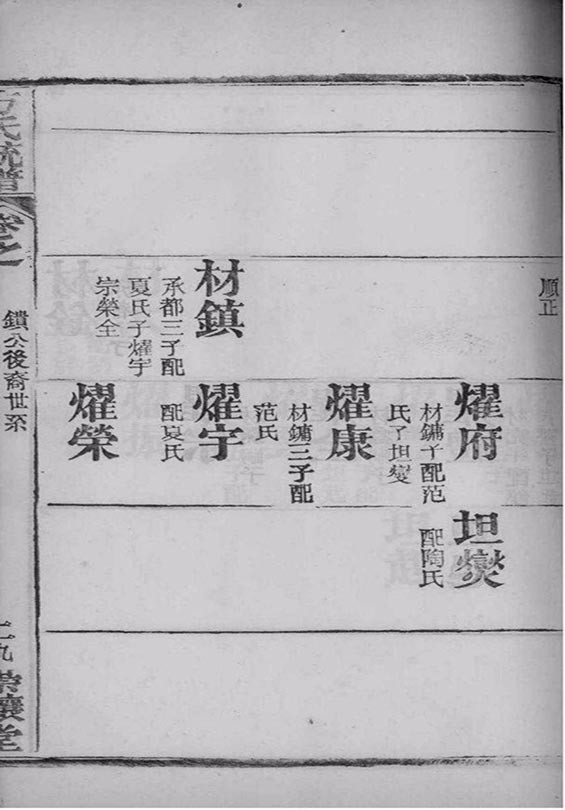 順正
材鎮
承都三子配
夏氏子燿宇
宗榮全
燿府
材鏞子配范
氏子坦燮
燿康
材鏞三子配
范氏
燿宇
配夏氏
燿榮
坦燮
配陶氏
氏統譜
卷之
鎖公後裔世系
二九
讓堂